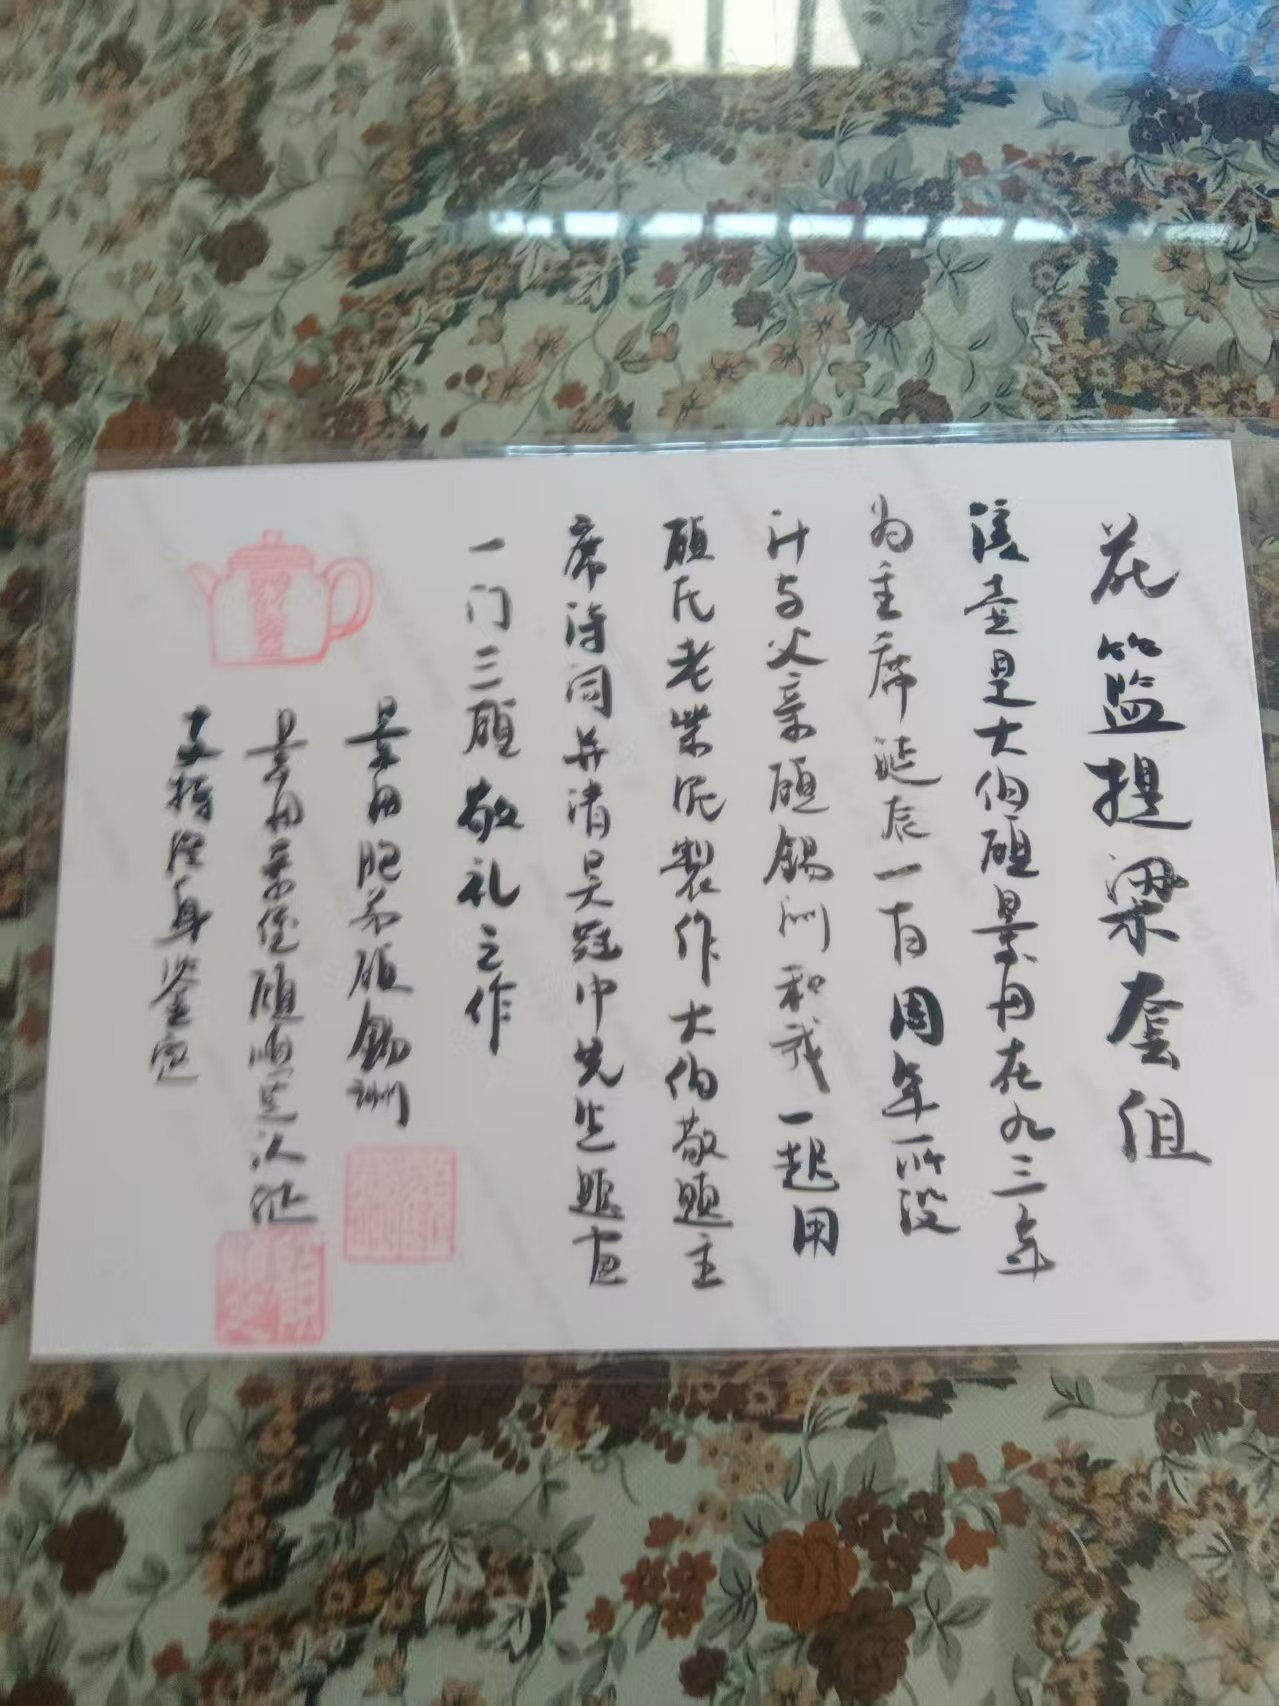 花篮提梁套组
该壶是大伯顾景舟在九三年
为主席诞辰一百周年所设
计与父亲顾锡洲和我一起用
顾氏老柴泥製作大伯敬题主
席诗词并请吴冠中先生题画
一门三顾敬礼之作
景舟肥弟顾锡洲
景舟亲侄顾顺芝次証
鉴定